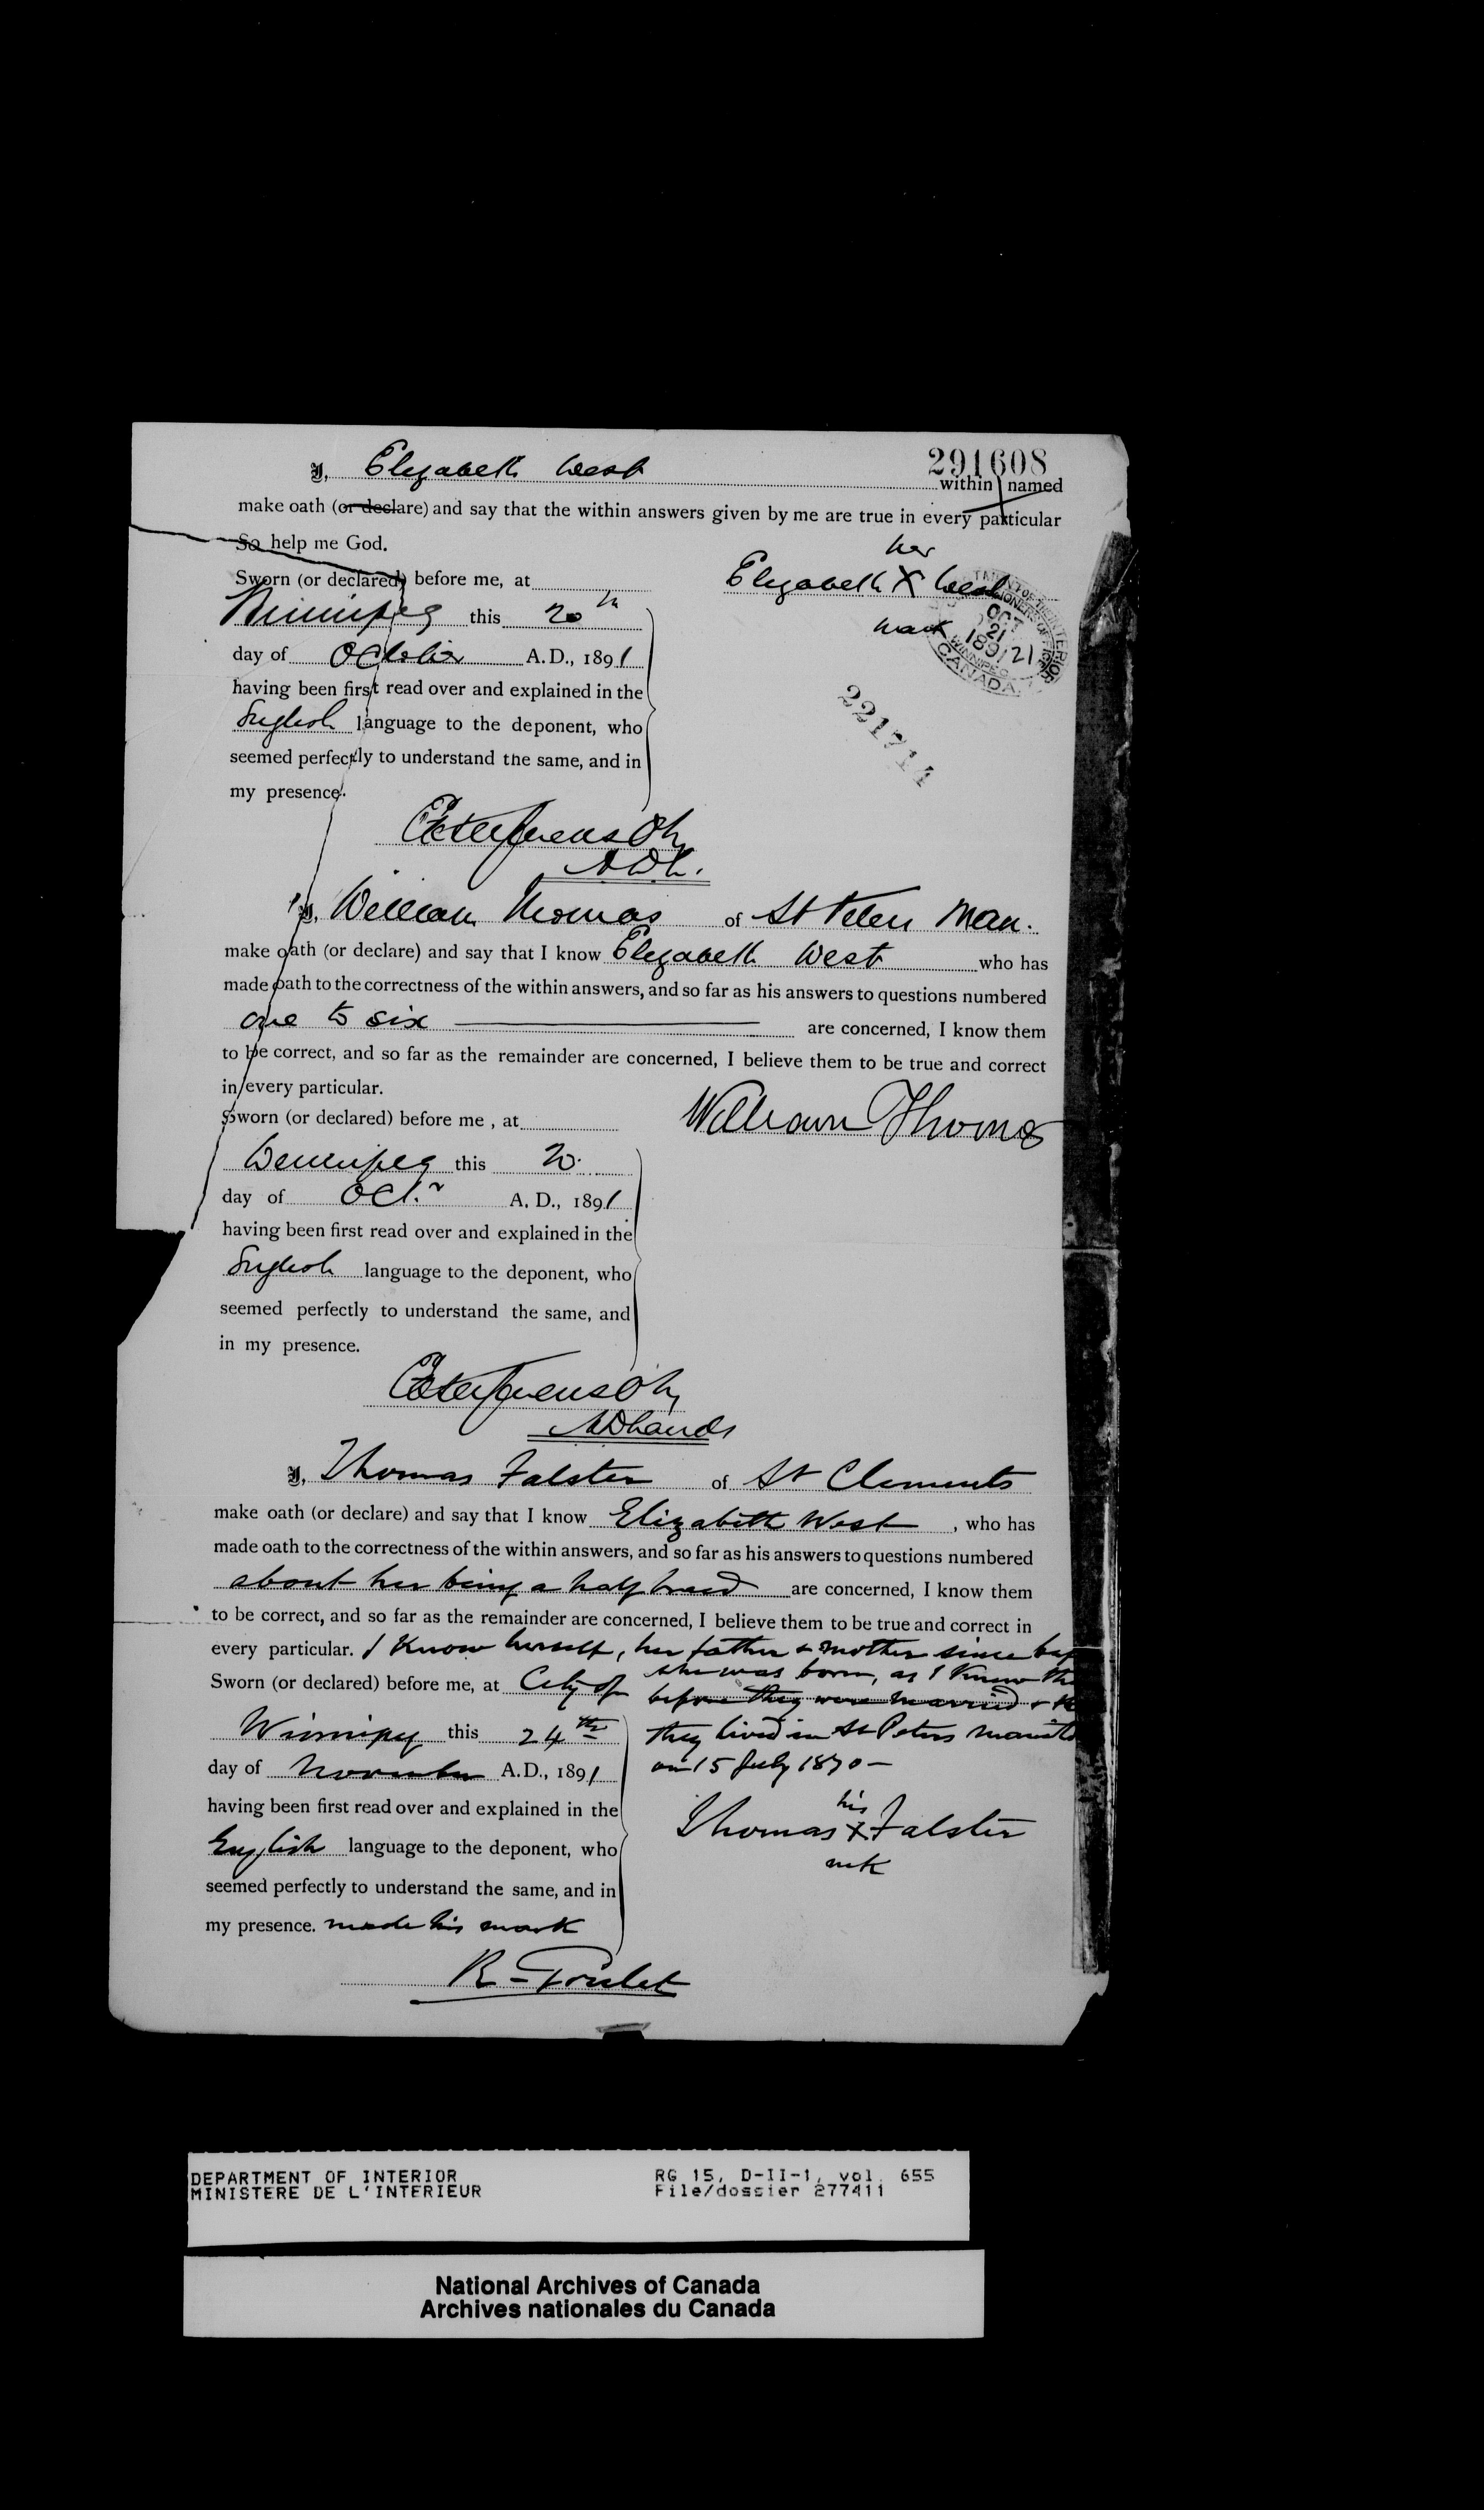 291608
I, Elizabeth West within named
make oath (or declare) and say that the within answers given by me are true in every particular
So help me God.
her
Sworn (or declared) before me, at Elizabeth X West
mark
Winnipeg this 20th
day of October A.D., 1891
having been first read over and explained in the
English language to the deponent, who
seemed perfectly to understand the same, and in
my presence.
OCT
21
1891
WINNIPEG
CANADA
221714
I, William Thomas of St Peters Man.
make oath (or declare) and say that I know Elizabeth West who has
made oath to the correctness of the within answers, and so far as his answers to questions numbered
one to six are concerned, I know them
to be correct, and so far as the remainder are concerned, I believe them to be true and correct
in every particular.
Sworn (or declared) before me, at William Thomas
Winnipeg this 20
day of Oct.r A.D., 1891
having been first read over and explained in the
English language to the deponent, who
seemed perfectly to understand the same, and
in my presence.
I, Thomas Falster of St Clements
make oath (or declare) and say that I know Elizabeth West, who has
made oath to the correctness of the within answers, and so far as his answers to questions numbered
about her being a half breed are concerned, I know them
to be correct, and so far as the remainder are concerned, I believe them to be true and correct in
every particular. I know herself, her father & mother since
she was born, as I knew
Sworn (or declared) before me, at City of
before they were married &
Winnipeg this 24th
they lived in St Peters
day of November A.D., 1891
on 15 July 1870 —
having been first read over and explained in the
his
Thomas X Falster
mk
English language to the deponent, who
seemed perfectly to understand the same, and in
my presence. made his mark
R. Goulet
DEPARTMENT OF INTERIOR RG 15, D-II-1, vol. 655
MINISTERE DE L'INTERIEUR File/dossier 277411
National Archives of Canada
Archives nationales du Canada